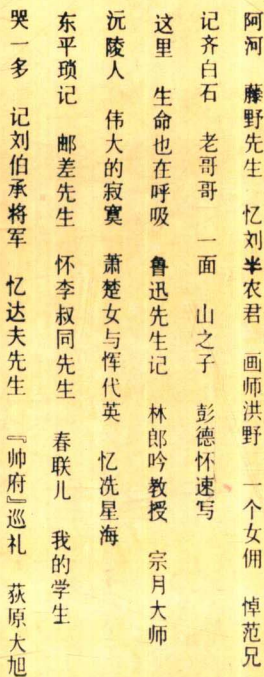 阿河 藤野先生 忆刘半农君 画师洪野 一个女佣 悼范兄
记齐白石 老哥哥 一面 山之子 彭德怀速写
这里 生命也在呼吸 鲁迅先生记 林郎吟教授 宗月大师
沅陵人 伟大的寂寞 萧楚女与恽代英 忆冼星海
东平琐记 邮差先生 怀李叔同先生 春联儿 我的学生
哭一多 记刘伯承将军 忆达夫先生 『帅府』巡礼 荻原大旭